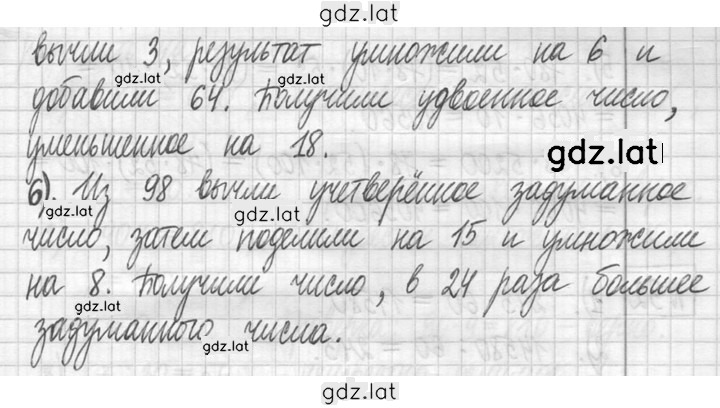 gdz.lat
вычли 3, результат умножили на 6 и
gdz.lat gdz.lat
добавили 64. Получили удвоенное число,
уменьшенное на 18.
gdz.lat
б). Из 98 вычли учетверённое задуманное
gdz.lat gdz.lat
число, затем поделили на 15 и умножили
на 8. Получили число, в 24 раза большее
gdz.lat gdz.lat
задуманного числа.
gdz.lat
gdz.lat